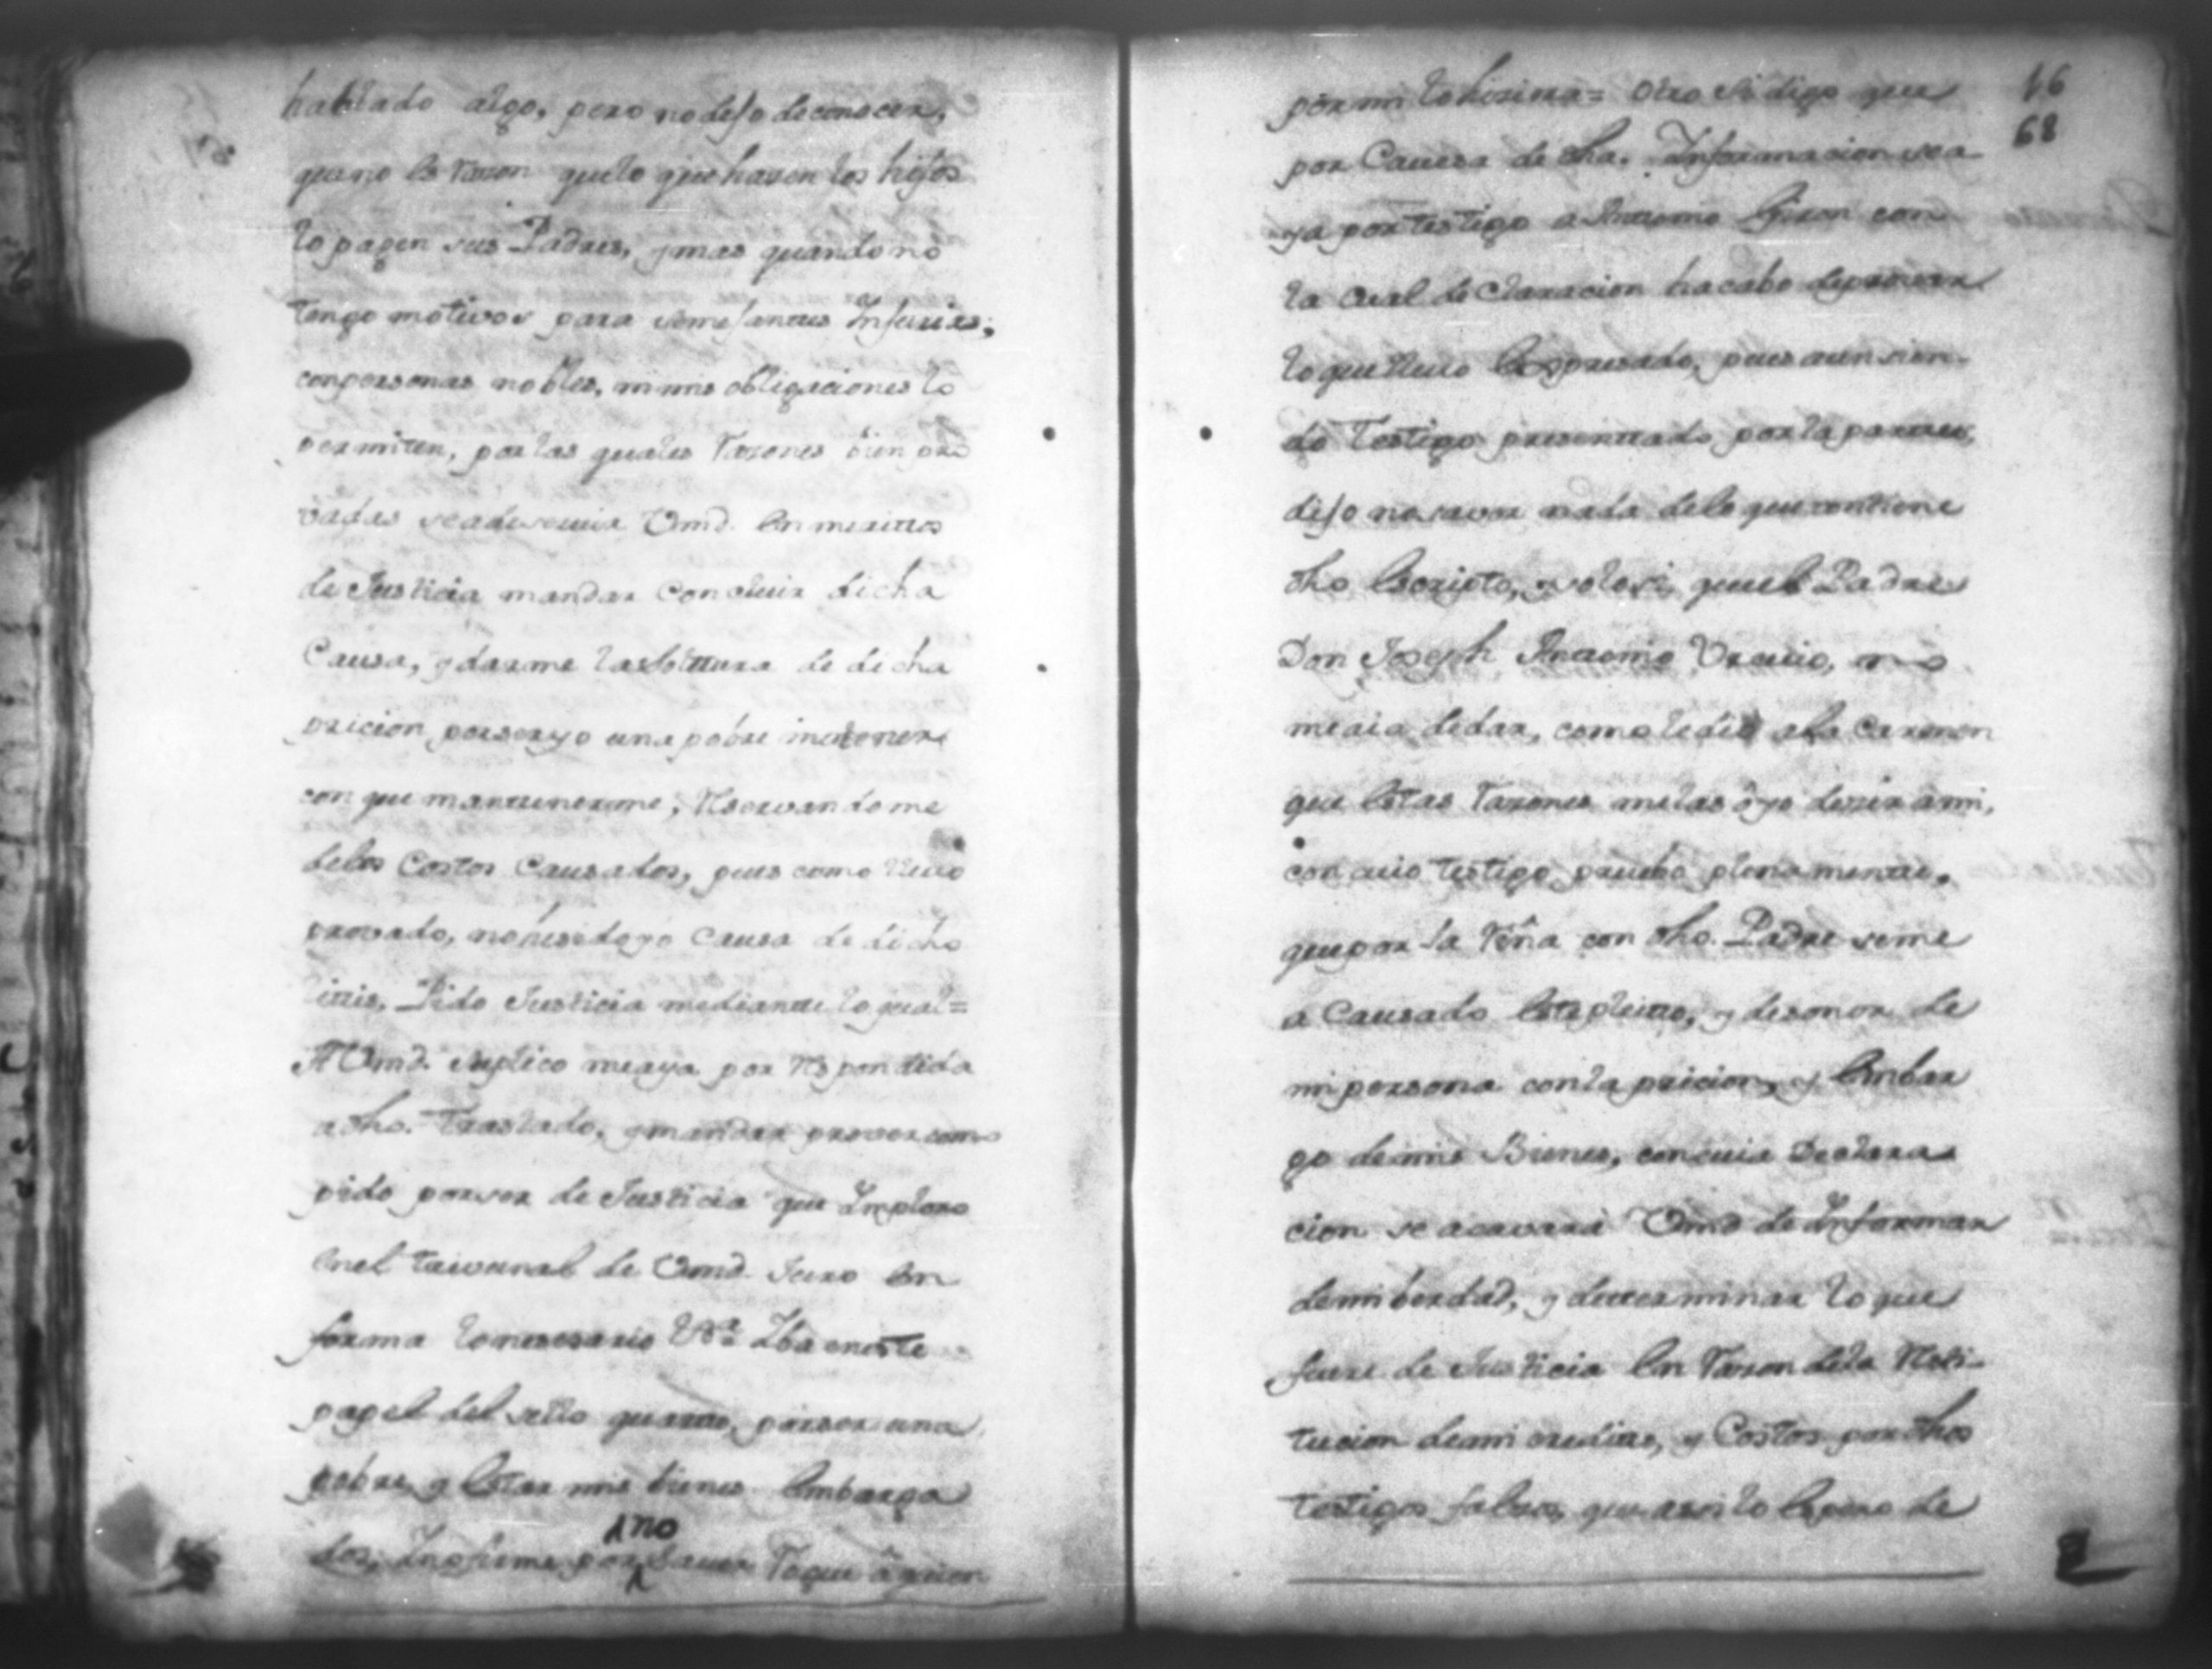 hablado algo, pero no dejo de conocer,
que no es razon que lo que hasen los hijos
lo pagen sus Padres, y mas quando no
tengo motivos para semejantes Injurias,
con personas nobles, ni mis obligaciones lo
permiten, por las quales rasones bien pro
vadas se ade servir Vmd. en meritos
de Justicia mandar Concluir dicha
Causa, y darme la soltura de dicha
pricion por ser yo una pobre
con que mantenerme, reservandome
delos Costos Causados, pues como llevo
provado, no he sido yo Causa de dicho
littis, Pido Justicia mediante lo qual=
A Vmd. suplico me aya por respondida
a dho. Traslado, y mandar prover como
pido por ser de Justicia que Imploro
en el trivunal de Vmd. Juro en
forma lo nesesario Va en este
papel del sello quarto, por ser una
pobre, y estar mis bienes embarga
dos, no firme por no saver rogue â quien
por mi lo hisiera= Otro si digo que
16
68
por Causa de dha. Informacion sea
ya por testigo a Antonio Giron con
la cual declaracion ha cabo de provar
lo que llevo expresado, pues aun sien-
do Testigo presentado por la parte,
dijo no saver nada delo que contiene
dho escripto, y solo si, que el Padre
Don Joseph Antonio, no
me aia dedar, como le dio ala Carmen
que estas rasones melas ôyo desir a mi,
con cuio testigo pruebo plenamente,
que por la riña con dho. Padre seme
a Causado este pleito, y desonor de
mi persona con la pricion, y embar
go de mis Bienes, con cuia Declara
cion se acavara Vmd de Informar
de mi berdad, y determinar lo que
fuere de Justicia en rason dela resti-
tucion demi credito, y Costos por dhos
testigos falsos, que asi lo espero de